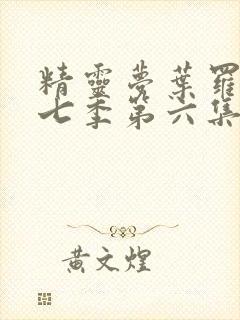 精靈夢葉羅
七季第六集
黃文煌